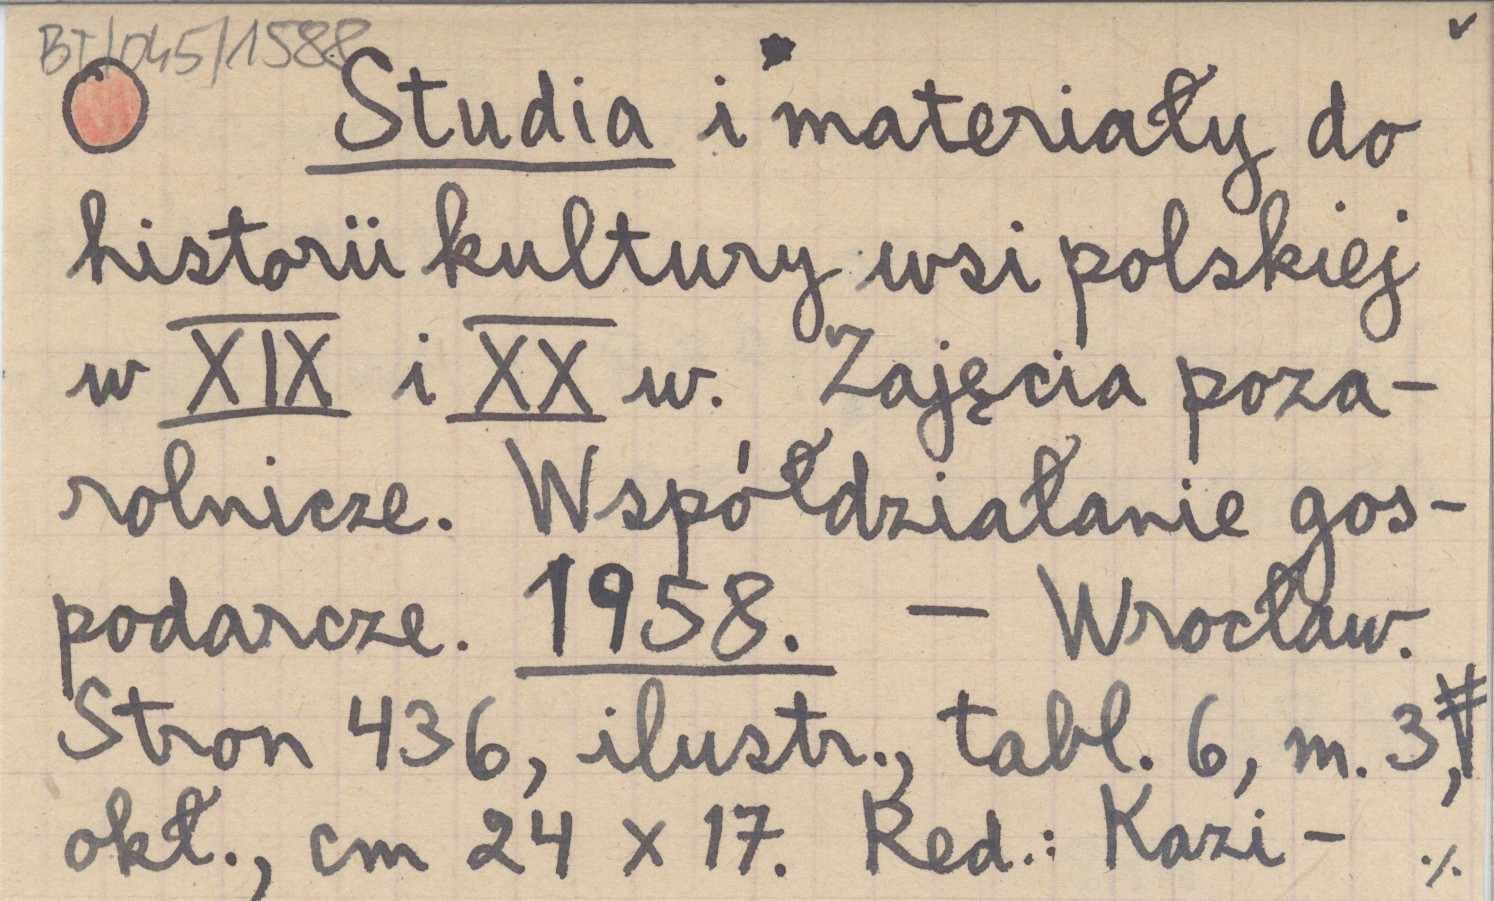 BT/045/1588
Studia i materiały do
historii kultury wsi polskiej
w XIX i XX w. Zajęcia poza-
rolnicze. Współdziałanie gos-
podarcze. 1958. — Wrocław.
Stron 436, ilustr., tabl. 6, m. 3,
okł., cm 24 x 17. Red.: Kazi-
./.